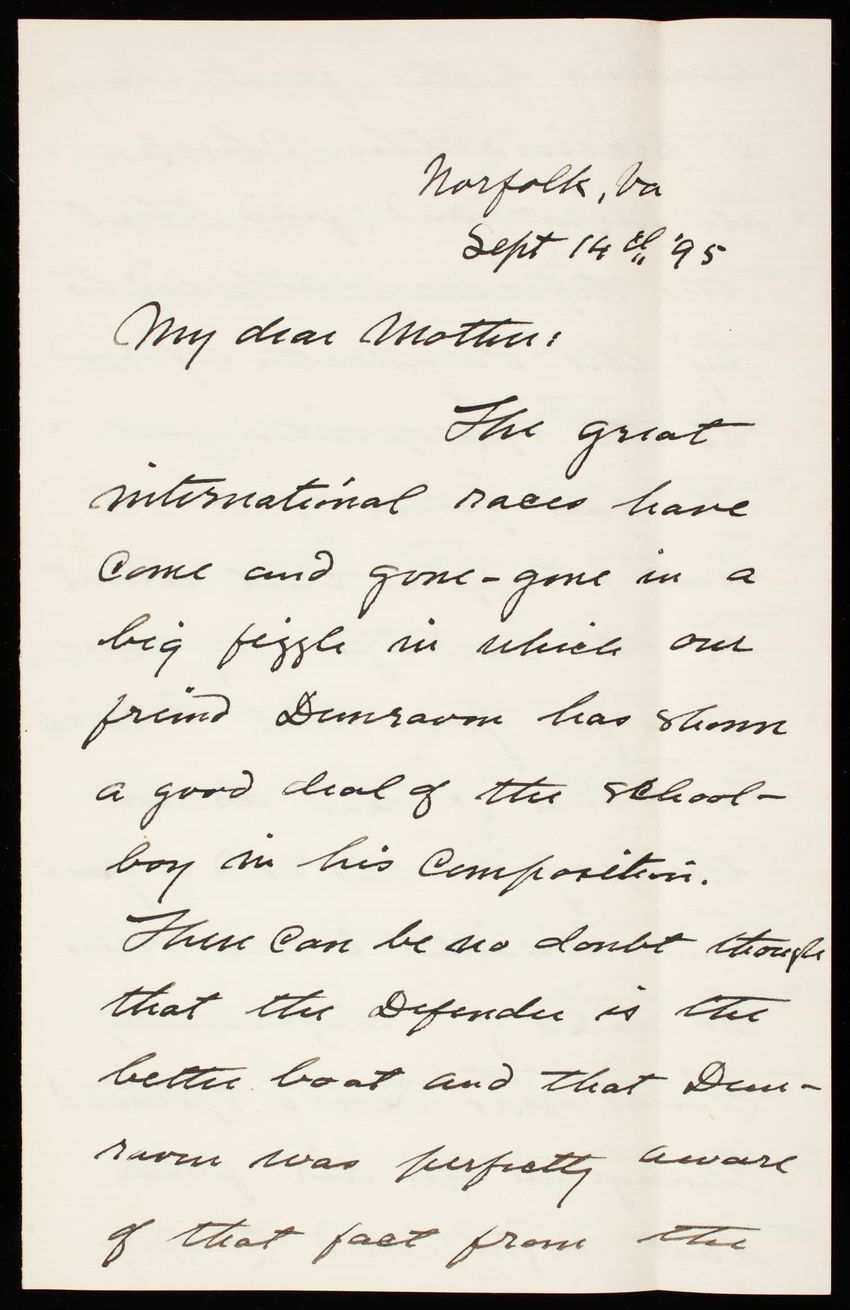 Norfolk, Va
Sept 14th '95
My dear Mother:
The great
international races have
come and gone - gone in a
big fizzle in which our
freind Dunraven has shown
a good deal of the school-
boy in his composition.
There can be no doubt though
that the Defender is the
better boat and that Dun-
raven was perfectly aware
of that fact from the